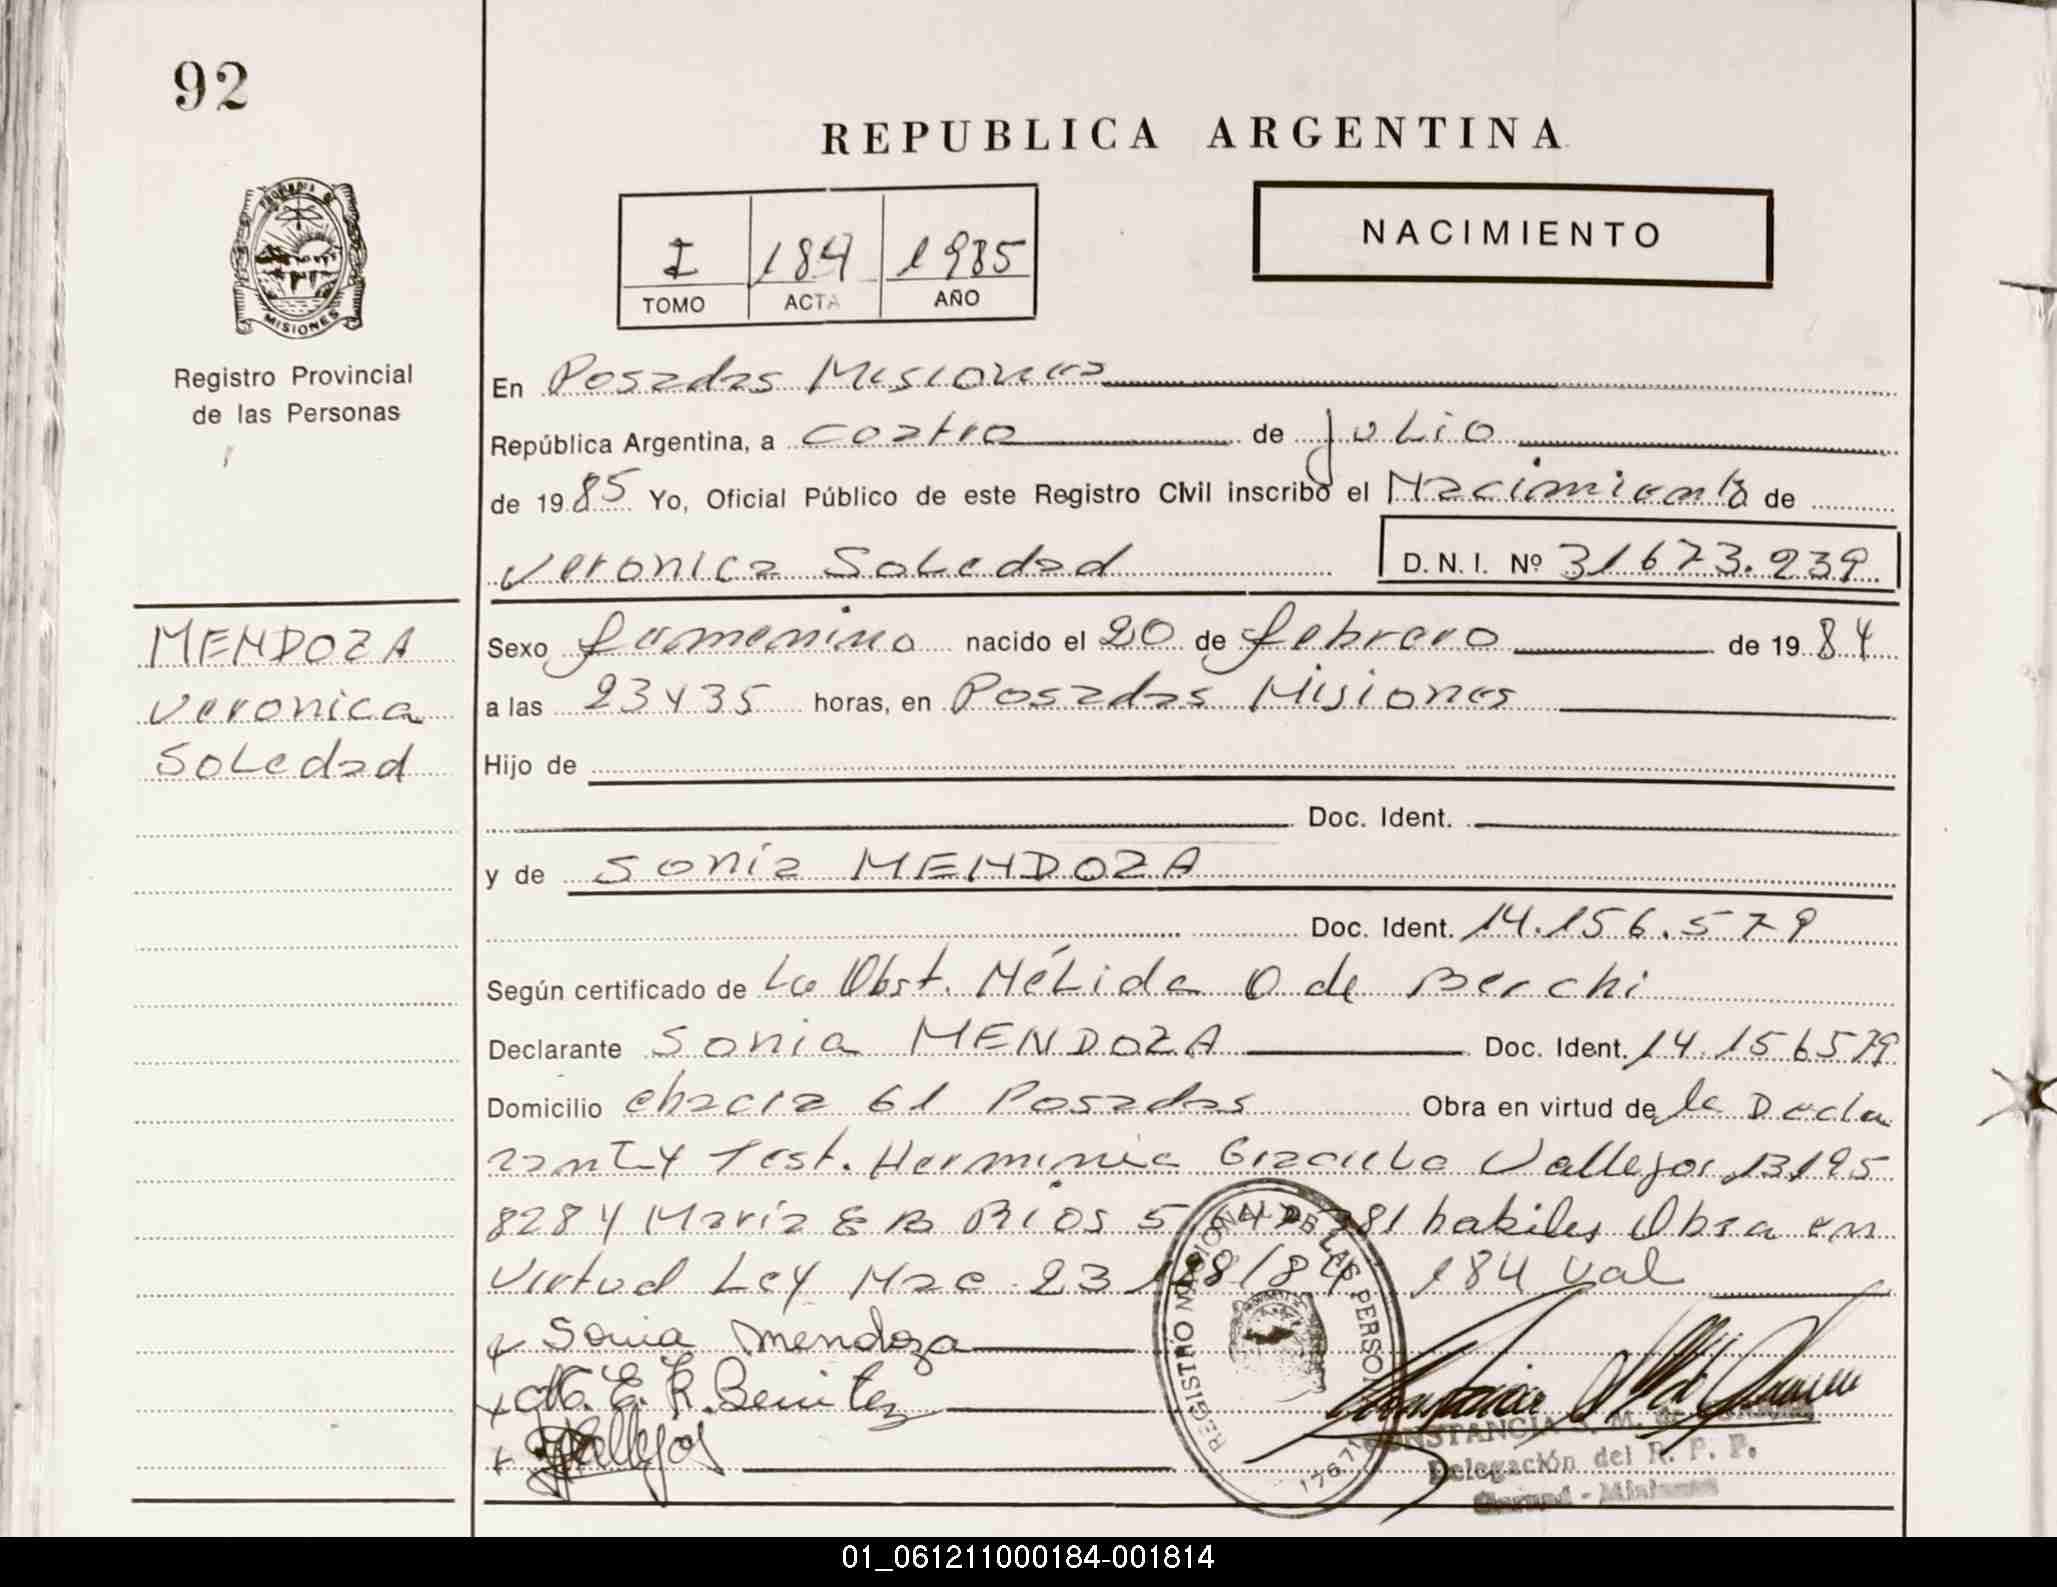 92
REPUBLICA ARGENTINA
PROVINCIA DE
MISIONES
Registro Provincial
de las Personas
I 184 1985
TOMO ACTA AÑO
NACIMIENTO
En Posadas Misiones
República Argentina, a coatro de julio
de 1985 Yo, Oficial Público de este Registro Civil inscribo el Nacimiento de
Veronica Soledad D.N.I. Nº 31673.239
MENDOZA
Veronica
Soledad
Sexo femenino nacido el 20 de febrero de 1984
a las 23 y 35 horas, en Posadas Misiones
Hijo de
Doc. Ident.
y de Sonia MENDOZA
Doc. Ident. 14.156.579
Según certificado de La Obst. Nélida O de Berchi
Declarante Sonia MENDOZA Doc. Ident. 14.156579
Domicilio chacra 61 Posadas Obra en virtud de la Decla
rant y Test. Herminia Graciela Vallejos 13195
828 y María E B Rios 5 381 habiles Obra en
Virtud Ley Nac 23 128/84 184 Val
Sonia Mendoza
M. E. R. Benitez
Vallejos
REGISTRO NACIONAL DE LAS PERSONAS
17671
CONSTANCIA M. de
Delegación del R. P. P.
- Misiones
01_061211000184-001814